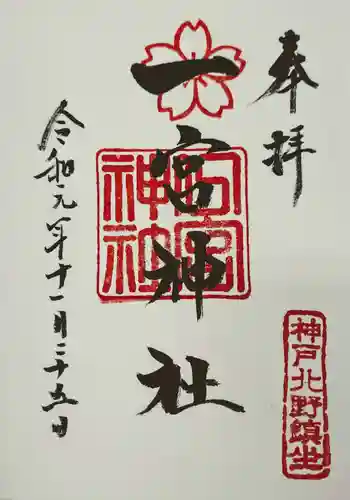 奉拝
一宮神社
一宮神社
神戸北野鎮坐
令和元年十一月二十五日